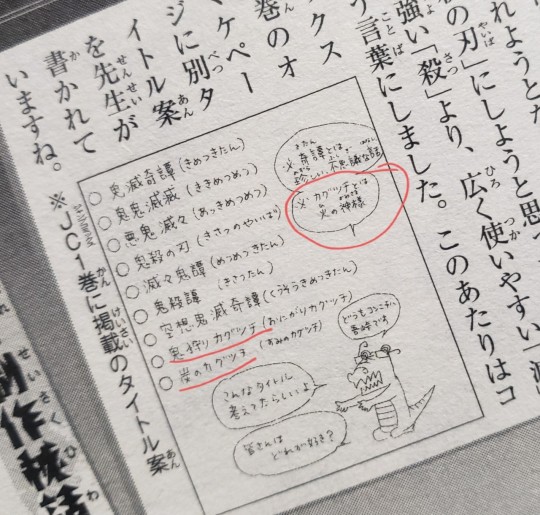 れようとた
の刃」にしようと思
強い「殺」より、広く使いやすい「滅
言葉にしました。このあたりはコ
ックス
巻のオ
マケペー
ジに別タ
イトル案
を先生が
書かれて
いますね。
○鬼滅奇譚(きめつきたん)
○鬼鬼滅滅(ききめつめつ)
○悪鬼滅々(あっきめつめつ)
○鬼殺の刃(きさつのやいば)
○滅々鬼譚(めつめつきたん)
○鬼殺譚(きさつたん)
○空想鬼滅奇譚(くうそうきめつきたん)
○鬼狩りカグツチ(おにがりカグツチ)
○炭のカグツチ(すみのカグツチ)
※奇譚とは
珍しい、不思議な話
※カグツチとは
火の神様
どうもコンニチハ
吾峠です
こんなタイトル
考えてたらしいよ
皆さんは
どれが好き?
※JC1巻に掲載のタイトル案
制作秘話